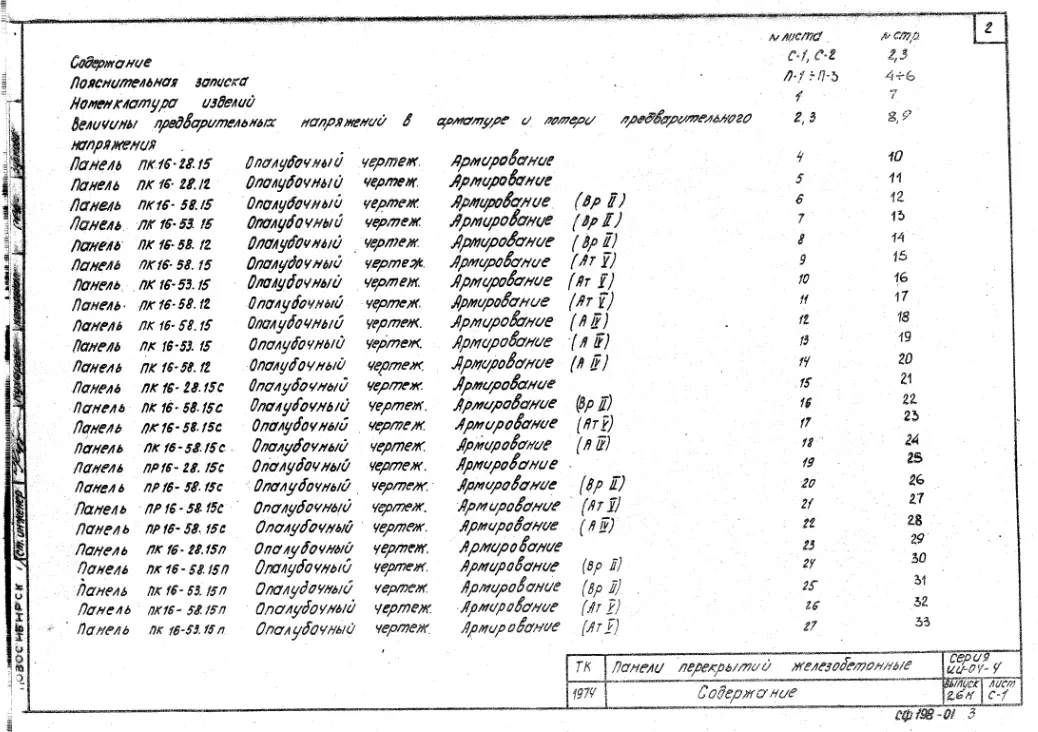 2
№ листа № стр.
Содержание С-1, С-2 2,3
Пояснительная записка П-1÷П-3 4÷6
Номенклатура изделий 1 7
Величины предварительных напряжений в арматуре и потери предварительного 2,3 8,9
напряжения
Панель ПК16-28.15 Опалубочный чертеж. Армирование 4 10
Панель ПК 16-28.12 Опалубочный чертеж. Армирование 5 11
Панель ПК16-58.15 Опалубочный чертеж. Армирование (Вр II) 6 12
Панель ПК 16-53.15 Опалубочный чертеж. Армирование (Вр II) 7 13
Панель ПК 16-58.12 Опалубочный чертеж. Армирование (Вр II) 8 14
Панель ПК16-58.15 Опалубочный чертеж. Армирование (Ат V) 9 15
Панель ПК 16-53.15 Опалубочный чертеж. Армирование (Ат V) 10 16
Панель ПК 16-58.12 Опалубочный чертеж. Армирование (Ат V) 11 17
Панель ПК 16-58.15 Опалубочный чертеж. Армирование (А IV) 12 18
Панель ПК 16-53.15 Опалубочный чертеж. Армирование (А IV) 13 19
Панель ПК 16-58.12 Опалубочный чертеж. Армирование (А IV) 14 20
Панель ПК 16-28.15с Опалубочный чертеж. Армирование 15 21
Панель ПК 16-58.15с Опалубочный чертеж. Армирование (Вр II) 16 22
Панель ПК 16-58.15с Опалубочный чертеж. Армирование (Ат V) 17 23
Панель ПК 16-58.15с Опалубочный чертеж. Армирование (А IV) 18 24
Панель ПР16-28.15с Опалубочный чертеж. Армирование 19 25
Панель ПР16-58.15с Опалубочный чертеж. Армирование (Вр II) 20 26
Панель ПР16-58.15с Опалубочный чертеж. Армирование (Ат V) 21 27
Панель ПР16-58.15с Опалубочный чертеж. Армирование (А IV) 22 28
Панель ПК 16-28.15п Опалубочный чертеж. Армирование 23 29
Панель ПК 16-58.15п Опалубочный чертеж. Армирование (Вр II) 24 30
Панель ПК 16-53.15п Опалубочный чертеж. Армирование (Вр II) 25 31
Панель ПК16-58.15п Опалубочный чертеж. Армирование (Ат V) 26 32
Панель ПК 16-53.15п Опалубочный чертеж. Армирование (Ат V) 27 33
ТК Панели перекрытий железобетонные Серия ИИ-04-4
1974 Содержание Выпуск 26К Лист С-1
СФ198-01 3
Ст. инженер
НОВОСИБИРСК